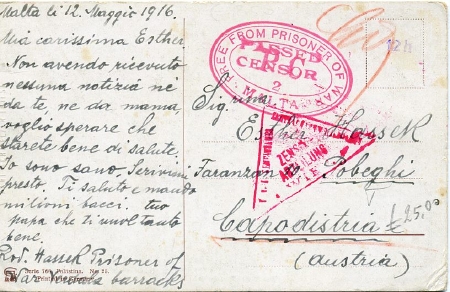 Malta li 12. Maggio 1916.
Mia carissima Esther.
Non avendo ricevuto
nessuna notizia ne
da te, ne da mama,
voglio sperare che
starete bene di salute.
Io sono sano. Scrivimi
presto. Ti saluto e mando
milioni bacci. tuo
papa che ti vuol tanto
bene.
Rod. Hassek Prisoner of
War barracks
Serie 160 Palistina. No 21.
FREE FROM PRISONER OF WAR
PASSED
CENSOR
2
MALTA
Sigrina
Esther Hassek
Taranzon Pobeghi
Capodistria
(Austria)
ZENSUR
ABTEILUNG
£ 25.00